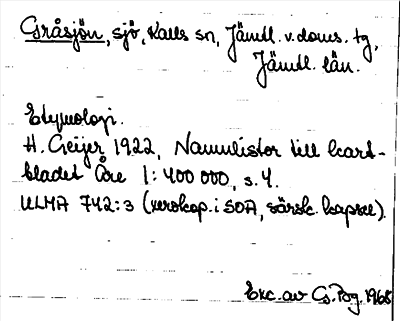 Gråsjön, sjö, Kalls sn, Jämtl. v. doms. tg,
Jämtl. län.
Etymologi.
H. Geijer 1922, Namnlistor till kart-
bladet Åre 1:400 000, s. 4.
ULMA 742:3 (xerokop. i SOA, särsk. kapsel).
Exc. av G. Pog. 1965